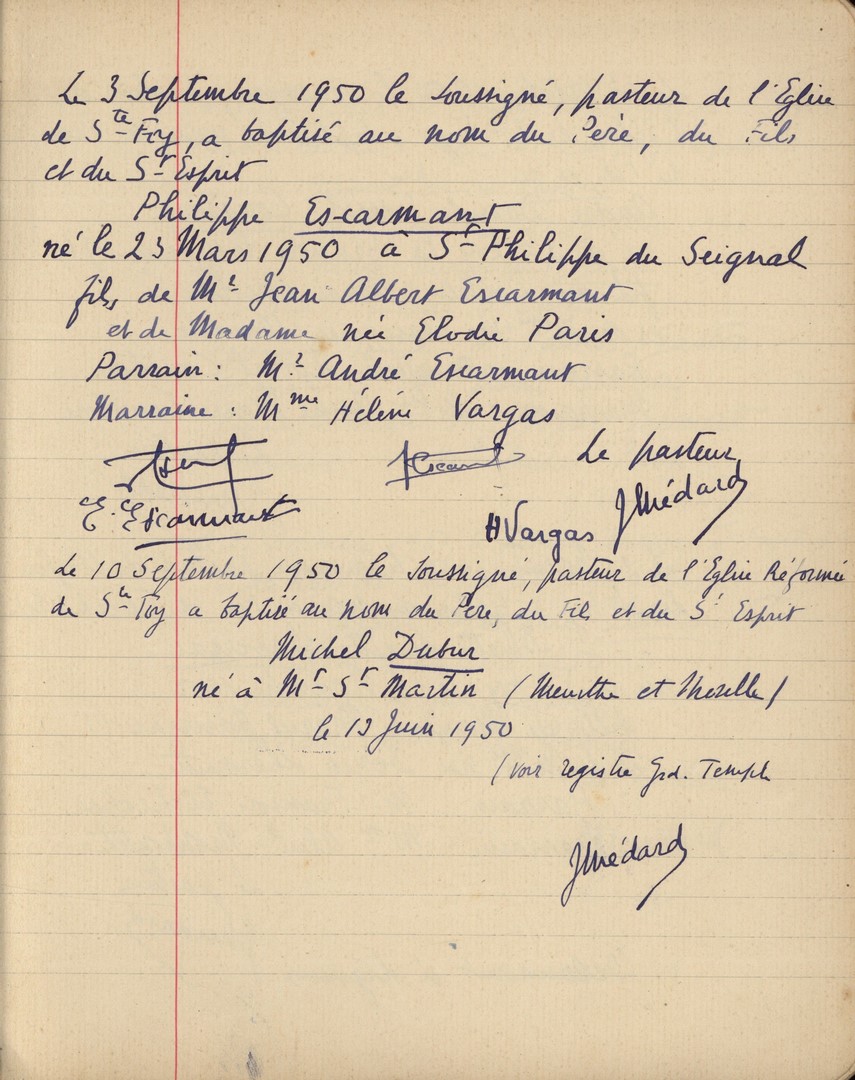 Le 3 Septembre 1950 le soussigné, pasteur de l'Eglise
de Ste Foy, a baptisé au nom du Père, du Fils
et du St Esprit
Philippe Escarmant
né le 23 Mars 1950 à St Philippe du Seignal
fils de Mr Jean Albert Escarmant
et de Madame née Elodie Paris
Parrain : Mr André Escarmant
Marraine : Mme Hélène Vargas
Le pasteur
E. Escarmant HVargas JMédard
Le 10 Septembre 1950 le soussigné, pasteur de l'Eglise Réformée
de Ste Foy a baptisé au nom du Père, du Fils et du St Esprit
Michel Dubur
né à Mt St Martin (Meurthe et Moselle)
le 12 Juin 1950
(voir registre Grd. Temple
JMédard